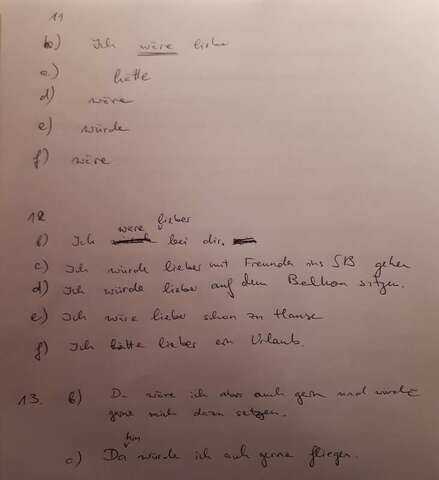 11
b) Ich wäre liebe
c) hatte
d) wäre
e) würde
f) wäre
12
b) Ich wäre lieber bei dir.
c) Ich würde lieber mit Freunden ins SB gehen
d) Ich würde lieber auf dem Balkon sitzen.
e) Ich wäre lieber schon zu Hause
f) Ich hätte lieber ein Urlaub.
13. b) Da wäre ich aber auch gern und würde
gerne mich dazu setzen.
c) Da hin würde ich auch gerne fliegen.